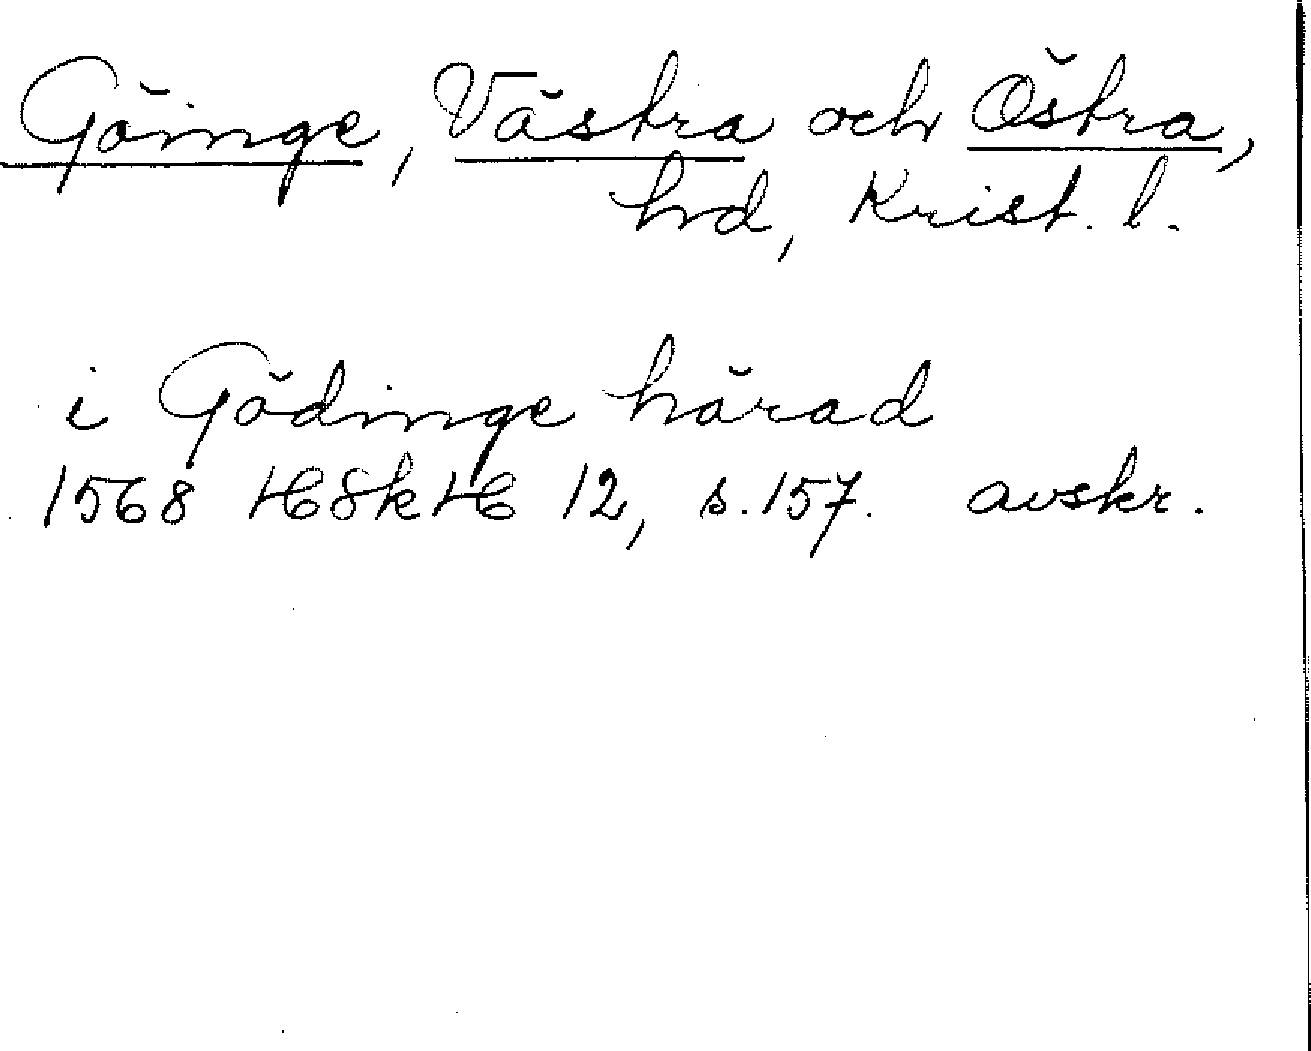 Göinge, Västra och Östra,
hrd, Krist. l.
i Gödinge härad
1568 HSkH 12, s. 157. avskr.